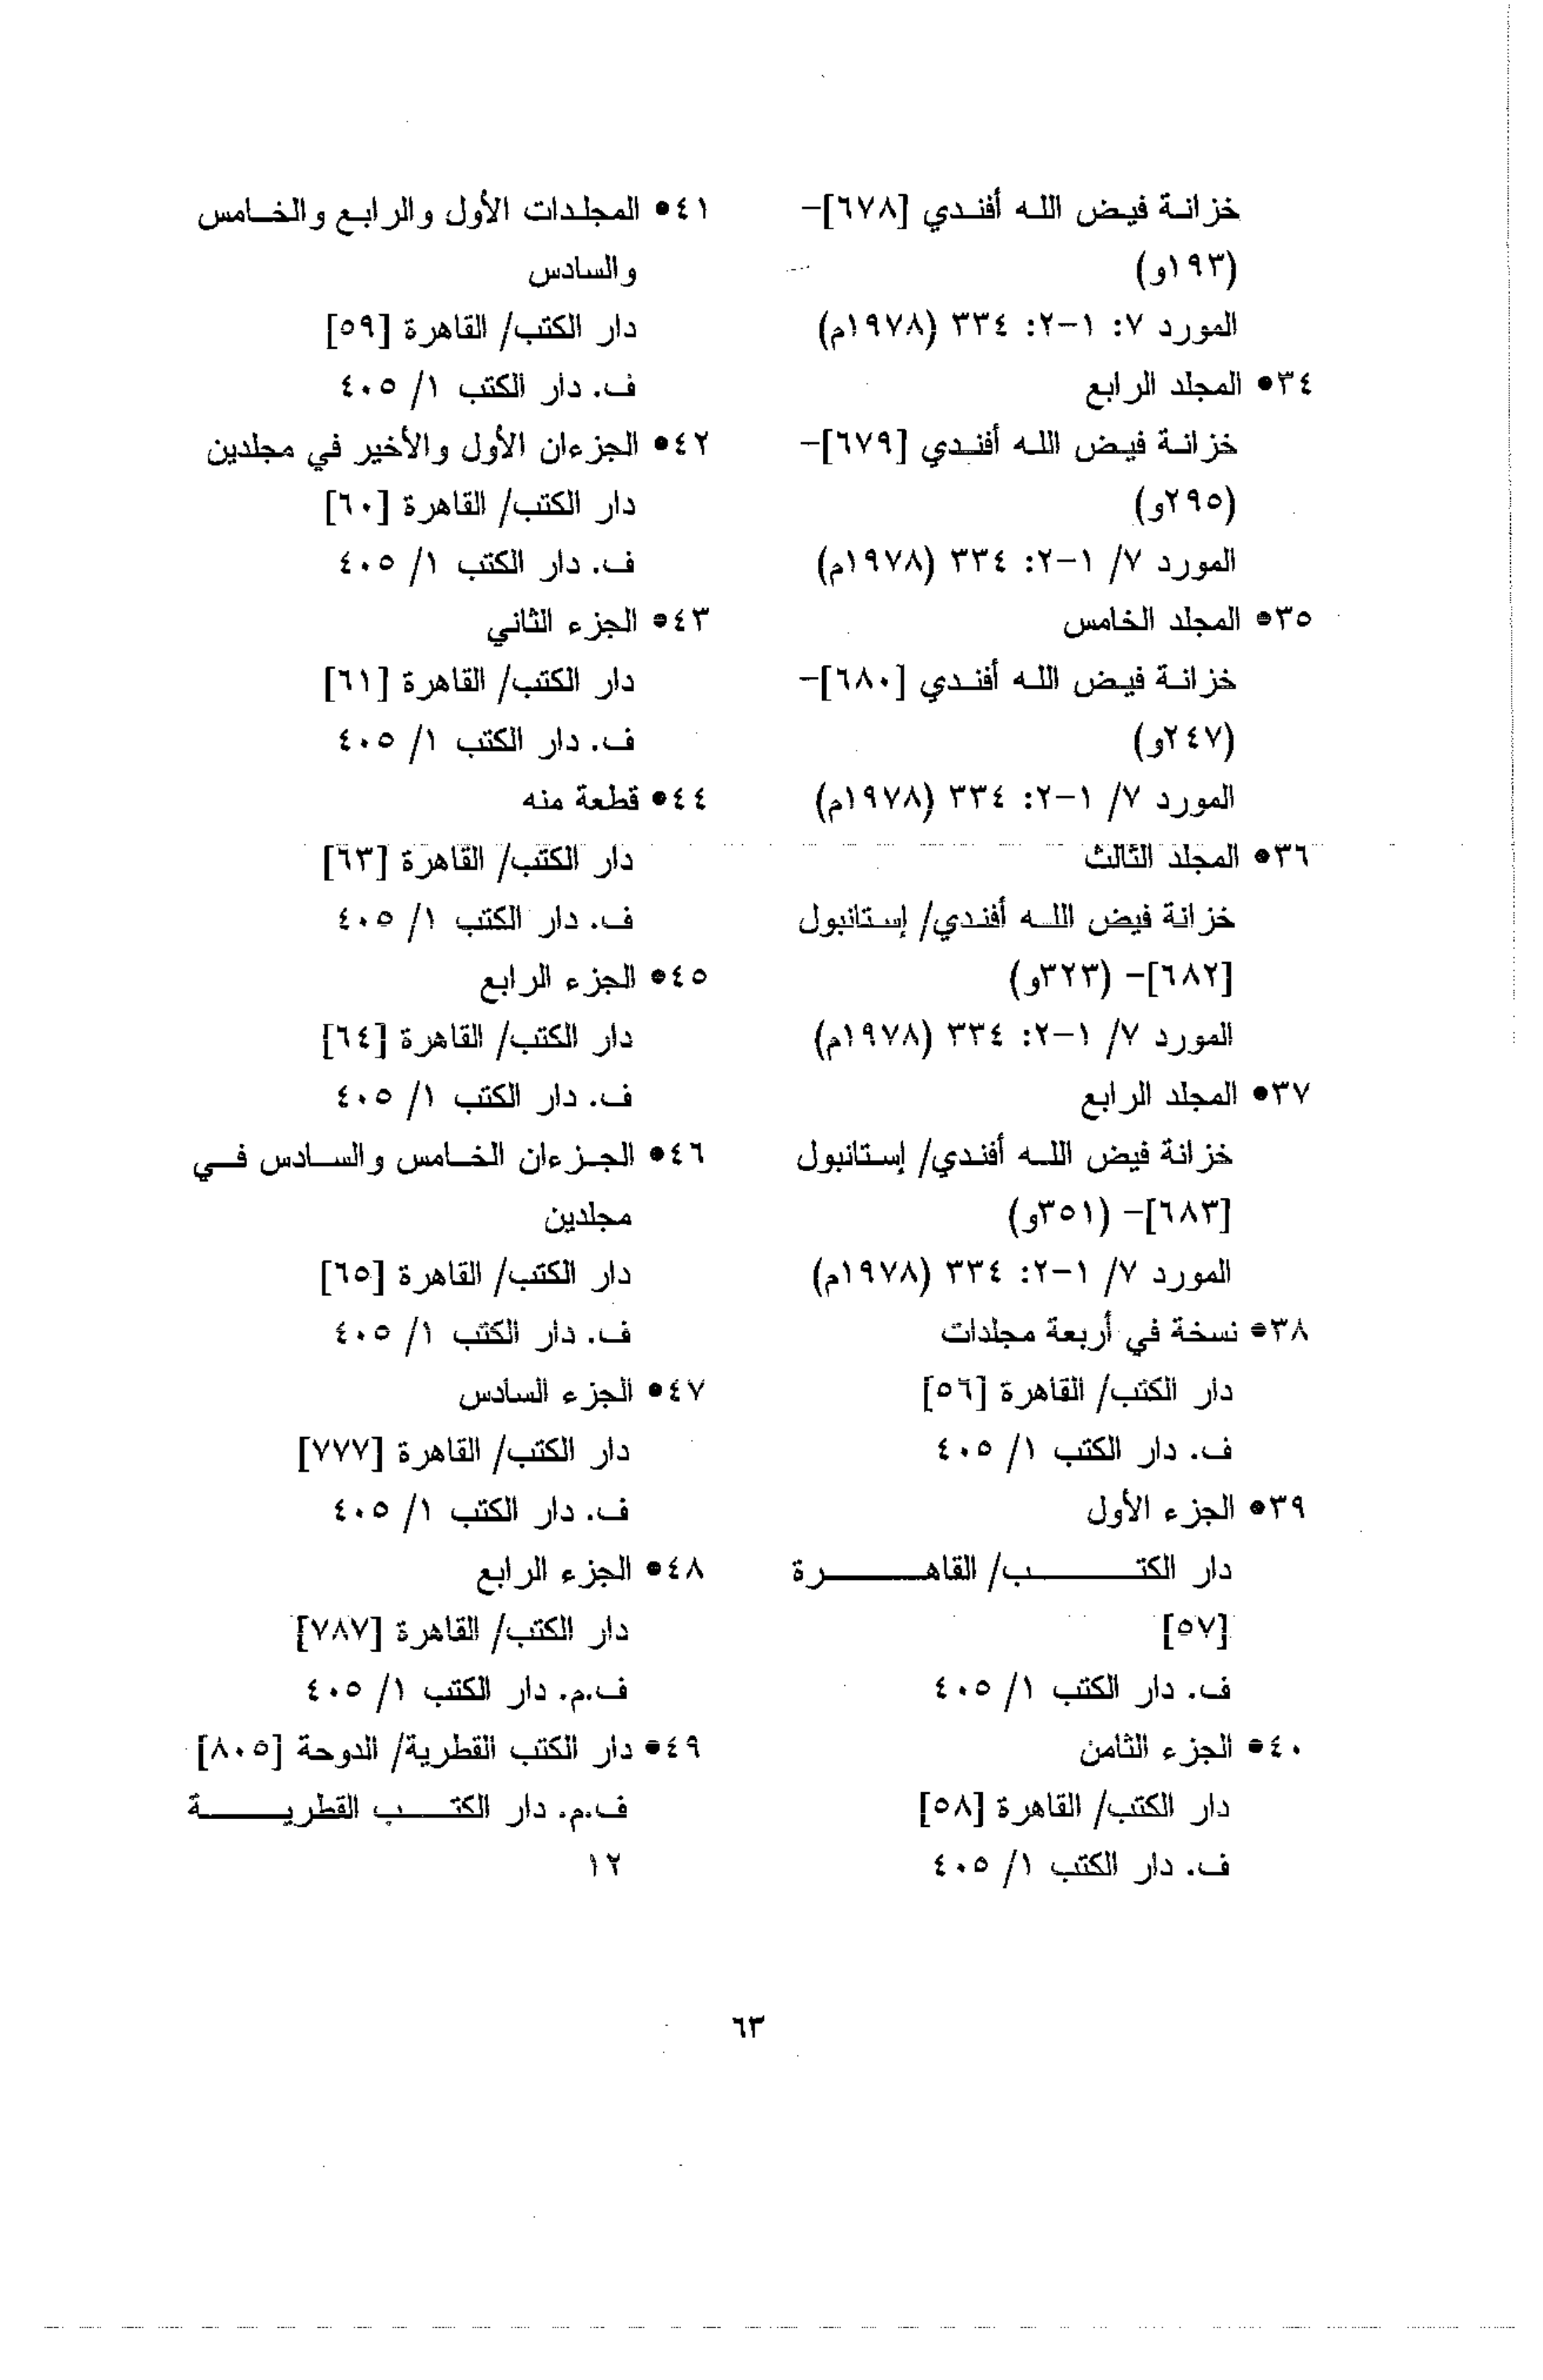 خزانة فيض الله أفندي [٦٧٨]-
(١٩٣و)
المورد ٧: ١-٢: ٣٣٤ (١٩٧٨م)
٣٤• المجلد الرابع
خزانة فيض الله أفندي [٦٧٩]-
(٢٩٥و)
المورد ٧/ ١-٢: ٣٣٤ (١٩٧٨م)
٣٥• المجلد الخامس
خزانة فيض الله أفندي [٦٨٠]-
(٢٤٧و)
المورد ٧/ ١-٢: ٣٣٤ (١٩٧٨م)
٣٦• المجلد الثالث
خزانة فيض الله أفندي/ إستانبول
[٦٨٢]- (٣٢٣و)
المورد ٧/ ١-٢: ٣٣٤ (١٩٧٨م)
٣٧• المجلد الرابع
خزانة فيض الله أفندي/ إستانبول
[٦٨٣]- (٣٥١و)
المورد ٧/ ١-٢: ٣٣٤ (١٩٧٨م)
٣٨• نسخة في أربعة مجلدات
دار الكتب/ القاهرة [٥٦]
ف. دار الكتب ١/ ٤٠٥
٣٩• الجزء الأول
دار الكتب/ القاهرة
[٥٧]
ف. دار الكتب ١/ ٤٠٥
٤٠• الجزء الثامن
دار الكتب/ القاهرة [٥٨]
ف. دار الكتب ١/ ٤٠٥
٤١• المجلدات الأول والرابع والخامس
والسادس
دار الكتب/ القاهرة [٥٩]
ف. دار الكتب ١/ ٤٠٥
٤٢• الجزءان الأول والأخير في مجلدين
دار الكتب/ القاهرة [٦٠]
ف. دار الكتب ١/ ٤٠٥
٤٣• الجزء الثاني
دار الكتب/ القاهرة [٦١]
ف. دار الكتب ١/ ٤٠٥
٤٤• قطعة منه
دار الكتب/ القاهرة [٦٣]
ف. دار الكتب ١/ ٤٠٥
٤٥• الجزء الرابع
دار الكتب/ القاهرة [٦٤]
ف. دار الكتب ١/ ٤٠٥
٤٦• الجزءان الخامس والسادس في
مجلدين
دار الكتب/ القاهرة [٦٥]
ف. دار الكتب ١/ ٤٠٥
٤٧• الجزء السادس
دار الكتب/ القاهرة [٧٧٧]
ف. دار الكتب ١/ ٤٠٥
٤٨• الجزء الرابع
دار الكتب/ القاهرة [٧٨٧]
ف.م. دار الكتب ١/ ٤٠٥
٤٩• دار الكتب القطرية/ الدوحة [٨٠٥]
ف.م. دار الكتب القطرية
١٢
٦٣